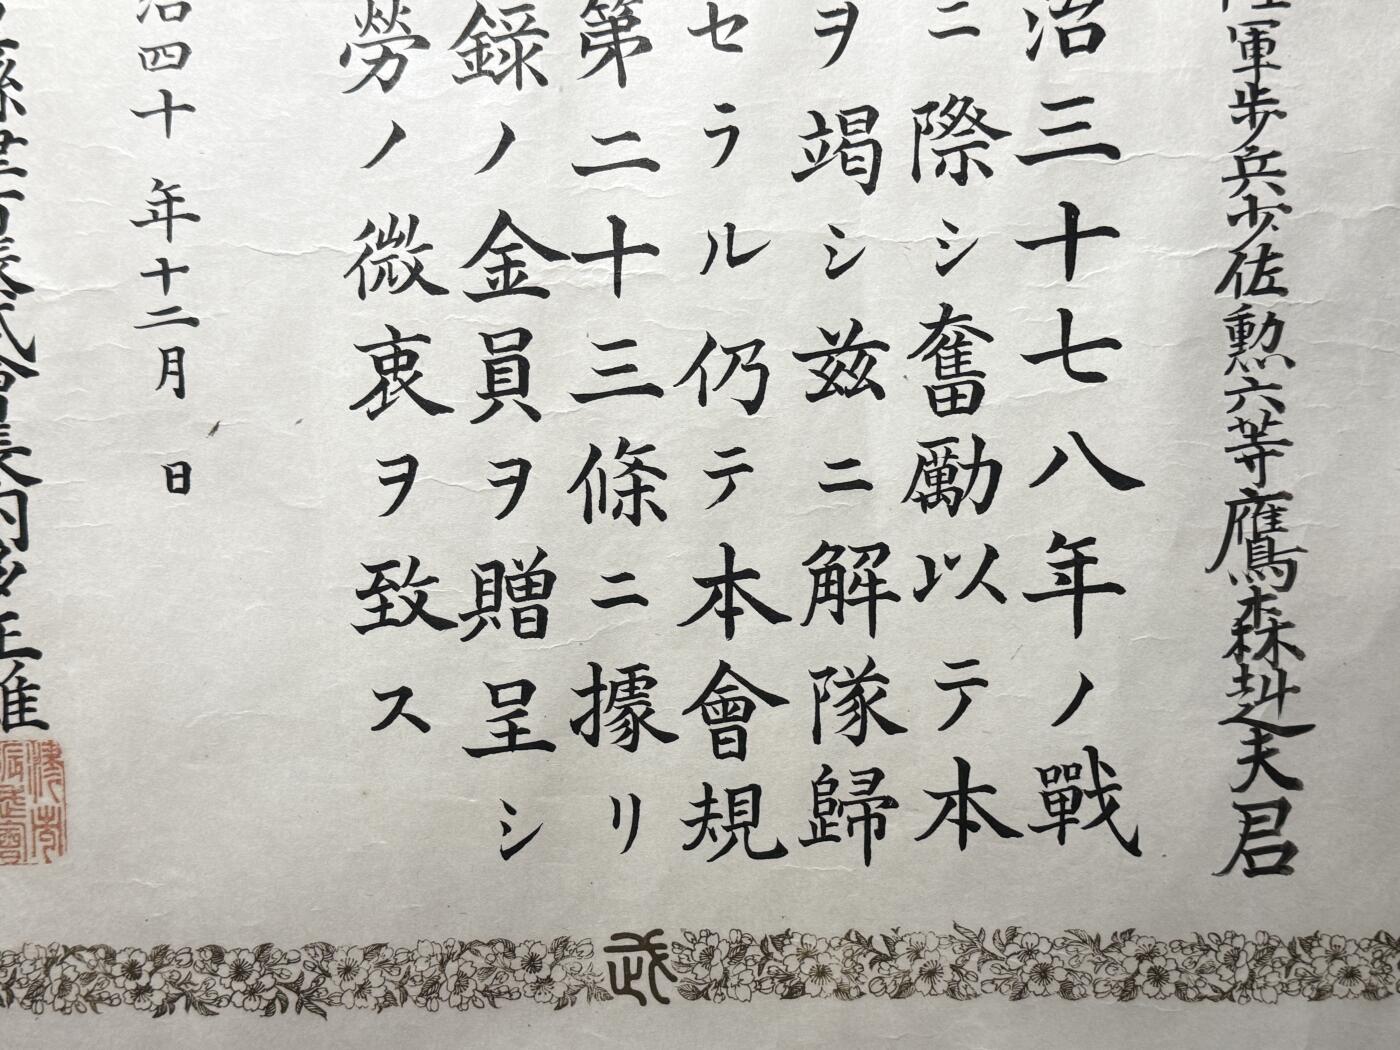 陸軍歩兵少佐勲六等鷹森赳夫君
治三十七八年ノ戰
ニ際シ奮勵以テ本
ヲ竭シ茲ニ解隊歸
セラル仍テ本會規
第二十三條ニ據リ
録ノ金員ヲ贈呈シ
勞ノ微衷ヲ致ス
治四十年十二月 日
武